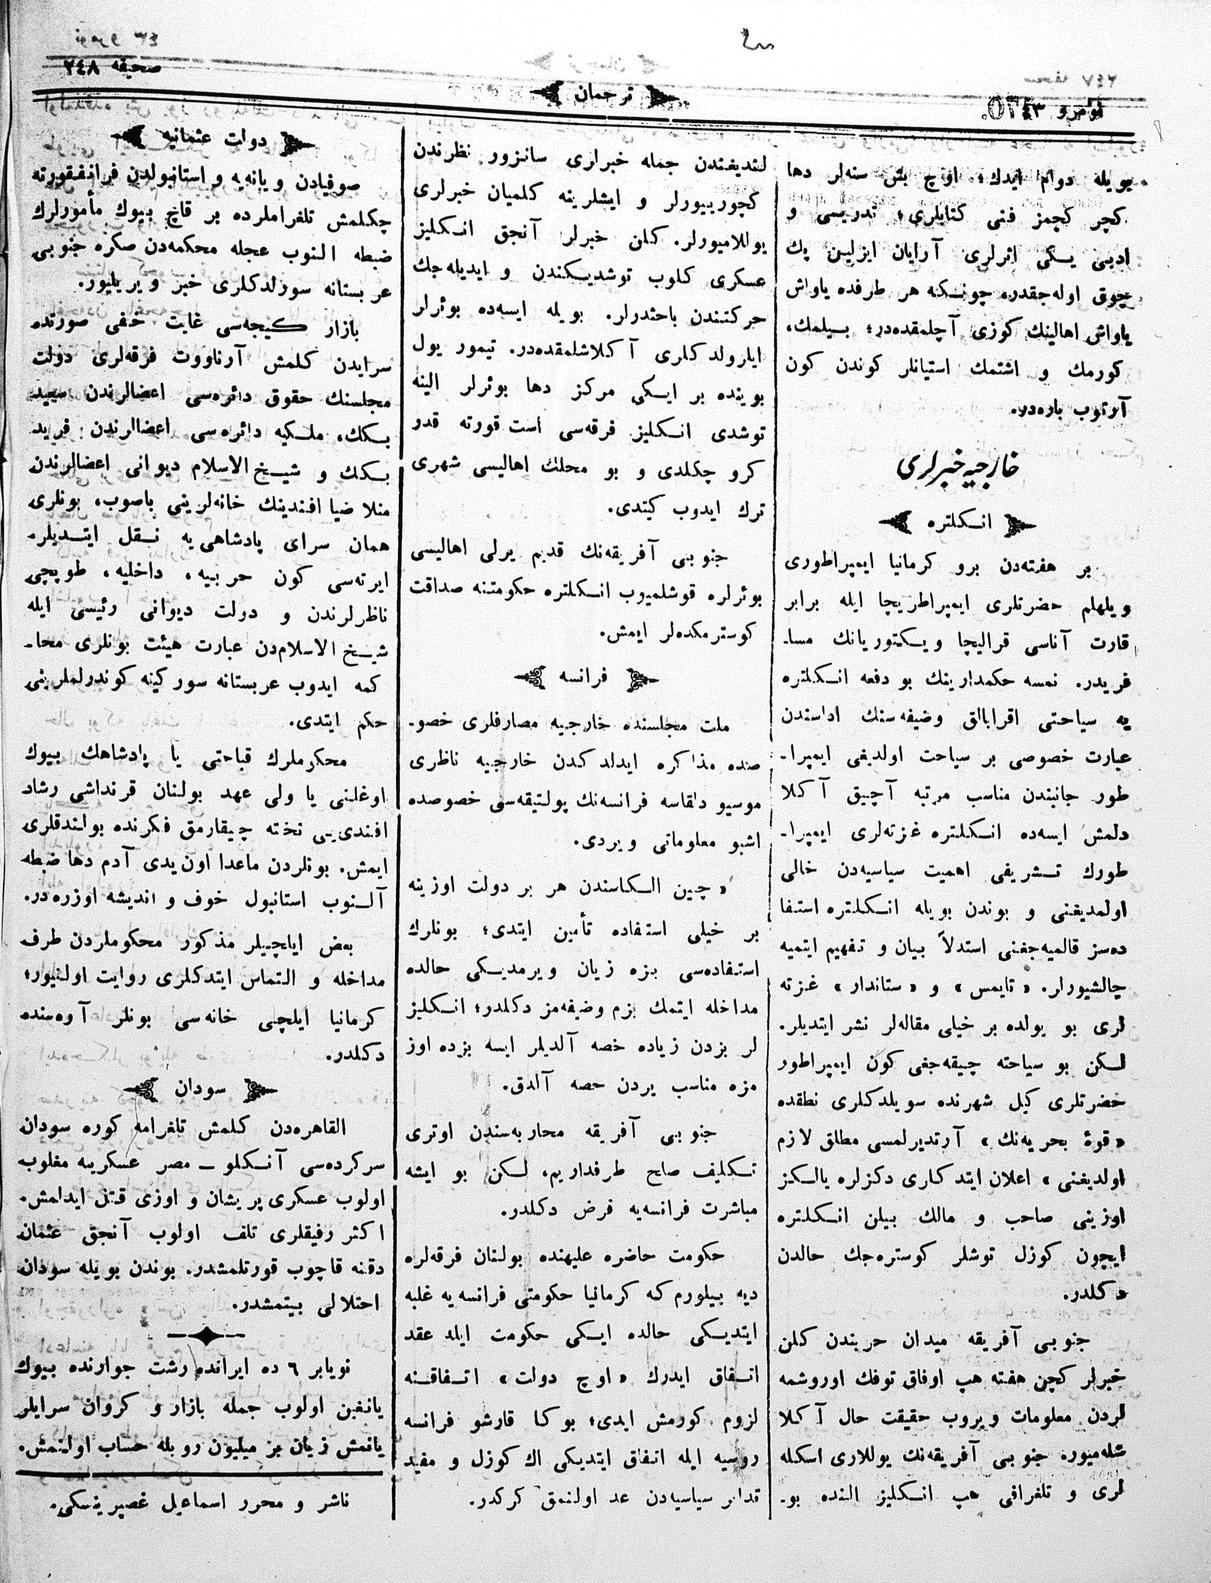 صحیفه ٢٤٨
ترجمان
نومرو ٤٣
بویله دوام ایدك، اوچ بش سنه‌لر دها
كچر كچمز فنی كتابلری؛ تدریسی و
ادبی یكی اثرلری آرایان ایزلیین پك
چوق اوله‌جقدر، چونكه هر طرفده یاواش
یاواش اهالینك كوزی آچلمقده‌در؛ بیلمك،
كورمك و اشتمك استیانلر كوندن كون
آرتوب باره‌در.
خارجیه خبرلری
انكلتره
بر هفته‌دن برو كرمانیا ایمپراطوری
ویلهلم حضرتلری ایمپراطریچا ایله برابر
قارت آناسی قرالیچا ویكتوریانك مسا-
فریدر. نمسه حكمدارینك بو دفعه انكلتره
یه سیاحتی اقرابالق وضیفه‌سنك اداسندن
عبارت خصوصی بر سیاحت اولدیغی ایمپرا-
طور جانبندن مناسب مرتبه آچیق آكلا
دلمش ایسه‌ده انكلتره غزته‌لری ایمپرا-
طورك تشریفی اهمیت سیاسیه‌دن خالی
اولمدیغنی و بوندن بویله انكلتره استفا
ده‌سز قالمیه‌جغنی استدلاً بیان و تفهیم ایتمیه
چالشیورلر. «تایمس» و «ستاندار» غزته
لری بو یولده بر خیلی مقاله‌لر نشر ایتدیلر.
لكن بو سیاحته چیقه‌جغی كون ایمپراطور
حضرتلری كیل شهرنده سویلدكلری نطقده
«قوۀ بحریه‌نك» آرتدیرلمسی مطلق لازم
اولدیغنی» اعلان ایتدكلری دكزلره یالكز
اوزینی صاحب و مالك بیلن انكلتره
ایچون كوزل توشلر كوستره‌جك حالدن
دكلدر.
جنوبی آفریقه میدان حربندن كلن
خبرلر كچن هفته هپ اوفاق توفك اوروشمه
لردن معلومات ویروب حقیقت حال آكلا
شله‌میور. جنوبی آفریقه‌نك یوللاری اسكله
لری و تلغرافی هپ انكلیز النده بو-
لندیغندن جمله خبراری سانزور نظرندن
كچورییورلر و ایشلرینه كلمیان خبرلری
یوللامیورلر. كلن خبرلر آنجق انكلیز
عسكری كلوب توشدیكندن و ایدیله‌جك
حركتندن باحثدرلر. بویله ایسه‌ده بوئرلر
ایارولدكلری آكلاشلمقده‌در. تیمور یول
بوینده بر ایكی مركز دها بوئرلر الینه
توشدی انكلیز فرقه‌سی است‌قورته قدر
كرو چكلدی و بو محلك اهالیسی شهری
ترك ایدوب كیتدی.
جنوبی آفریقه‌نك قدیم یرلی اهالیسی
بوئرلره قوشلمیوب انكلتره حكومتنه صداقت
كوسترمكده‌لر ایمش.
فرانسه
ملت مجلسنده خارجیه مصارفلری خصو-
صنده مذاكره ایدلدكدن خارجیه ناظری
موسیو دلقاسه فرانسه‌نك پولتیقه‌سی خصوصده
اشبو معلوماتی ویردی.
«چین الكاسندن هر بر دولت اوزینه
بر خیلی استفاده تأمین ایتدی؛ بونلرك
استفاده‌سی بزه زیان ویرمدیكی حالده
مداخله ایتمك بزم وضیفه‌مز دكلدر؛ انكلیز
لر بزدن زیاده خصه آلدیلر ایسه بزده اوز
مزه مناسب یردن حصه آلدق.
جنوبی آفریقه محاربه‌سندن اوتری
تكلیف صلح طرفداریم، لكن بو ایشه
مباشرت فرانسه‌یه فرض دكلدر.
حكومت حاضره علیهنده بولنان فرقه‌لره
دیه بیلورم كه كرمانیا حكومتی فرانسه‌یه غلبه
ایتدیكی حالده ایكی حكومت ایله عقد
اتفاق ایدرك «اوچ دولت» اتفاقنه
لزوم كورمش ایدی؛ بوكا قارشو فرانسه
روسیه ایله اتفاق ایتدیكی اك كوزل و مفید
تدابر سیاسیه‌دن عد اولنمق كركدر.
دولت عثمانیه
صوفیادن ویانه‌یه و استانبولدن فرانقفورته
چكلمش تلغراملرده بر قاچ بیوك مأمورلرك
ضبطه النوب عجله محكمه‌دن صكره جنوبی
عربستانه سورلدكلری خبر ویریلیور.
بازار كیجه‌سی غایت خفی صورتده
سرایدن كلمش آرناووت فرقه‌لری دولت
مجلسنك حقوق دائره‌سی اعضالرندن سعید
بكك، ملكیه دائره‌سی اعضالرندن فرید
بكك و شیخ الاسلام دیوانی اعضالرندن
منلا ضیا افندینك خانه‌لرینی باصوب، بونلری
همان سرای پادشاهی‌یه نقل ایتدیلر.
ایرته‌سی كون حربیه، داخلیه، طوپچی
ناظرلرندن و دولت دیوانی رئیسی ایله
شیخ الاسلام‌دن عبارت هیئت بونلری محا-
كمه ایدوب عربستانه سوركینه كوندرلملرینی
حكم ایتدی.
محكوملرك قباحتی یا پادشاهك بیوك
اوغلنی یا ولی عهد بولنان قرنداشی رشاد
افندی‌یی تخته چیقارمق فكرنده بولندقلری
ایمش. بونلردن ماعدا اون یدی آدم دها ضبطه
آلنوب استانبول خوف و اندیشه اوزره‌در.
بعض ایلچیلر مذكور محكوملردن طرف
مداخله و التماس ایتدكلری روایت اولنیور؛
كرمانیا ایلچی خانه‌سی بونلر آره‌سنده
دكلدر.
سودان
القاهره‌دن كلمش تلغرامه كوره سودان
سركرده‌سی آنكلو - مصر عسكرینه مغلوب
اولوب عسكری پریشان و اوزی قتل ایدلمش.
اكثر رفیقلری تلف اولوب آنجق عثمان
دقنه قاچوب قورتلمشدر. بوندن بویله سودان
احتلالی بیتمشدر.
نویابر ٦ ده ایرانده رشت جوارنده بیوك
یانغین اولوب جمله بازار و كروان سرایلر
یانمش زیان بر میلیون روبله حساب اولنمش.
ناشر و محرر اسماعیل غصپرینسكی.